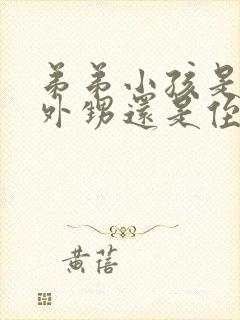 弟弟小孩是
外甥還是侄
黃蓓